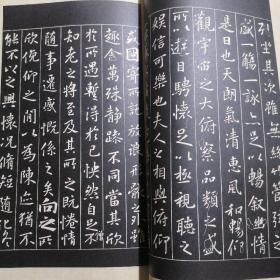 列坐其次雖
盛一觴一詠亦足以暢敘幽情
是日也天朗氣清惠風和暢仰
觀宇宙之大俯察品類之盛
所以遊目騁懷足以極視聽之
娛信可樂也夫人之相與俯仰
或因寄所
趣舍萬殊靜躁不同當其欣
於所遇蹔得於己快然自足不
知老之將至及其所之既惓情
隨事遷感慨係之矣向之所
欣俛仰之閒以為陳迹猶不
能不以之興懷況脩短隨化終